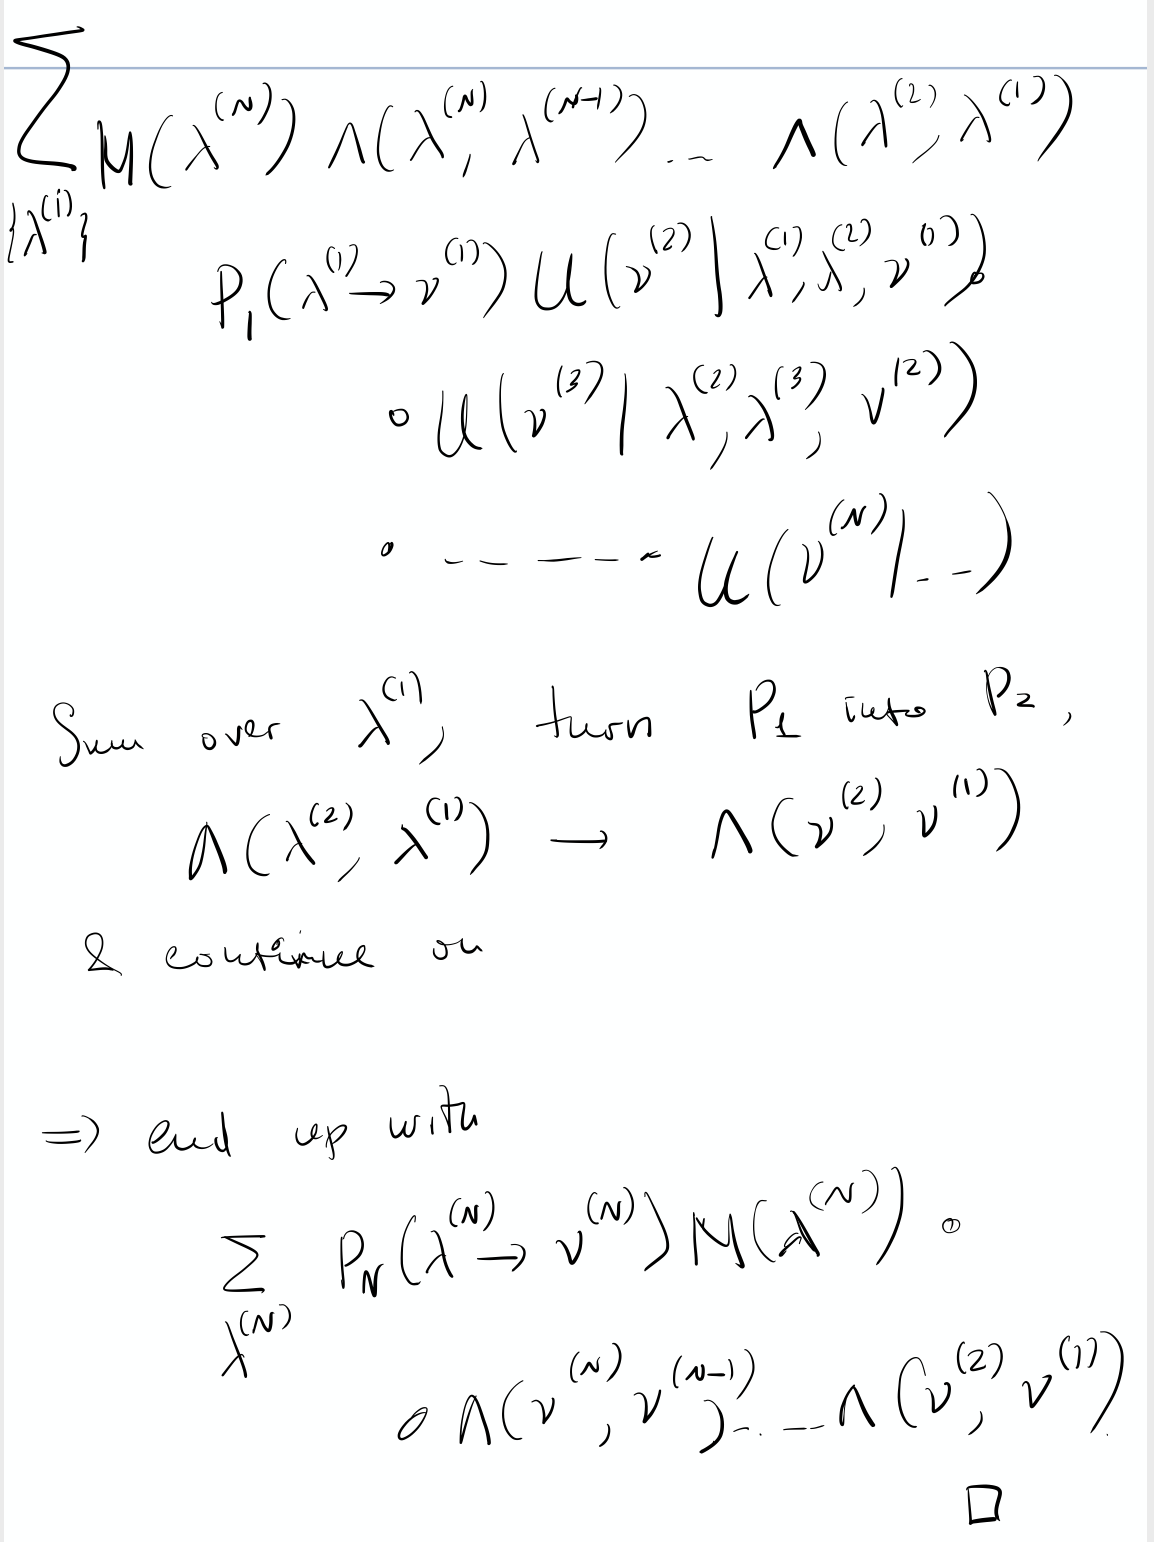 ∑_{λ^{(i)}} M(λ^{(N)}) Λ(λ^{(N)}, λ^{(N-1)}) ... Λ(λ^{(2)}, λ^{(1)})
P_1(λ^{(1)} → ν^{(1)}) U(ν^{(2)} | λ^{(1)}, λ^{(2)}, ν^{(1)}) ∘
∘ U(ν^{(3)} | λ^{(2)}, λ^{(3)}, ν^{(2)})
∘ ------ U(ν^{(N)} | ...)
Sum over λ^{(1)}, turn P_1 into P_2,
Λ(λ^{(2)}, λ^{(1)}) → Λ(ν^{(2)}, ν^{(1)})
& continue on
⇒ end up with
∑_{λ^{(N)}} P_N(λ^{(N)} → ν^{(N)}) M(λ^{(N)}) ∘
∘ Λ(ν^{(N)}, ν^{(N-1)}) ... Λ(ν^{(2)}, ν^{(1)})
□